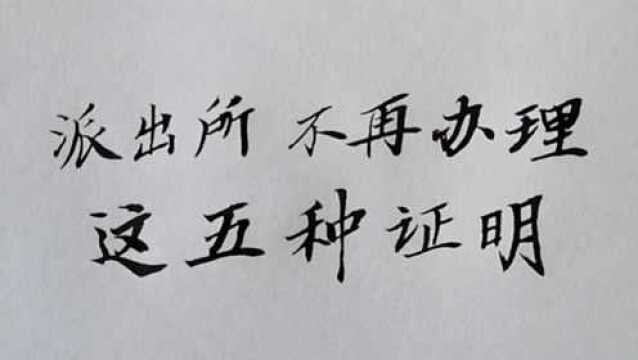 派出所 不再办理
这五种证明